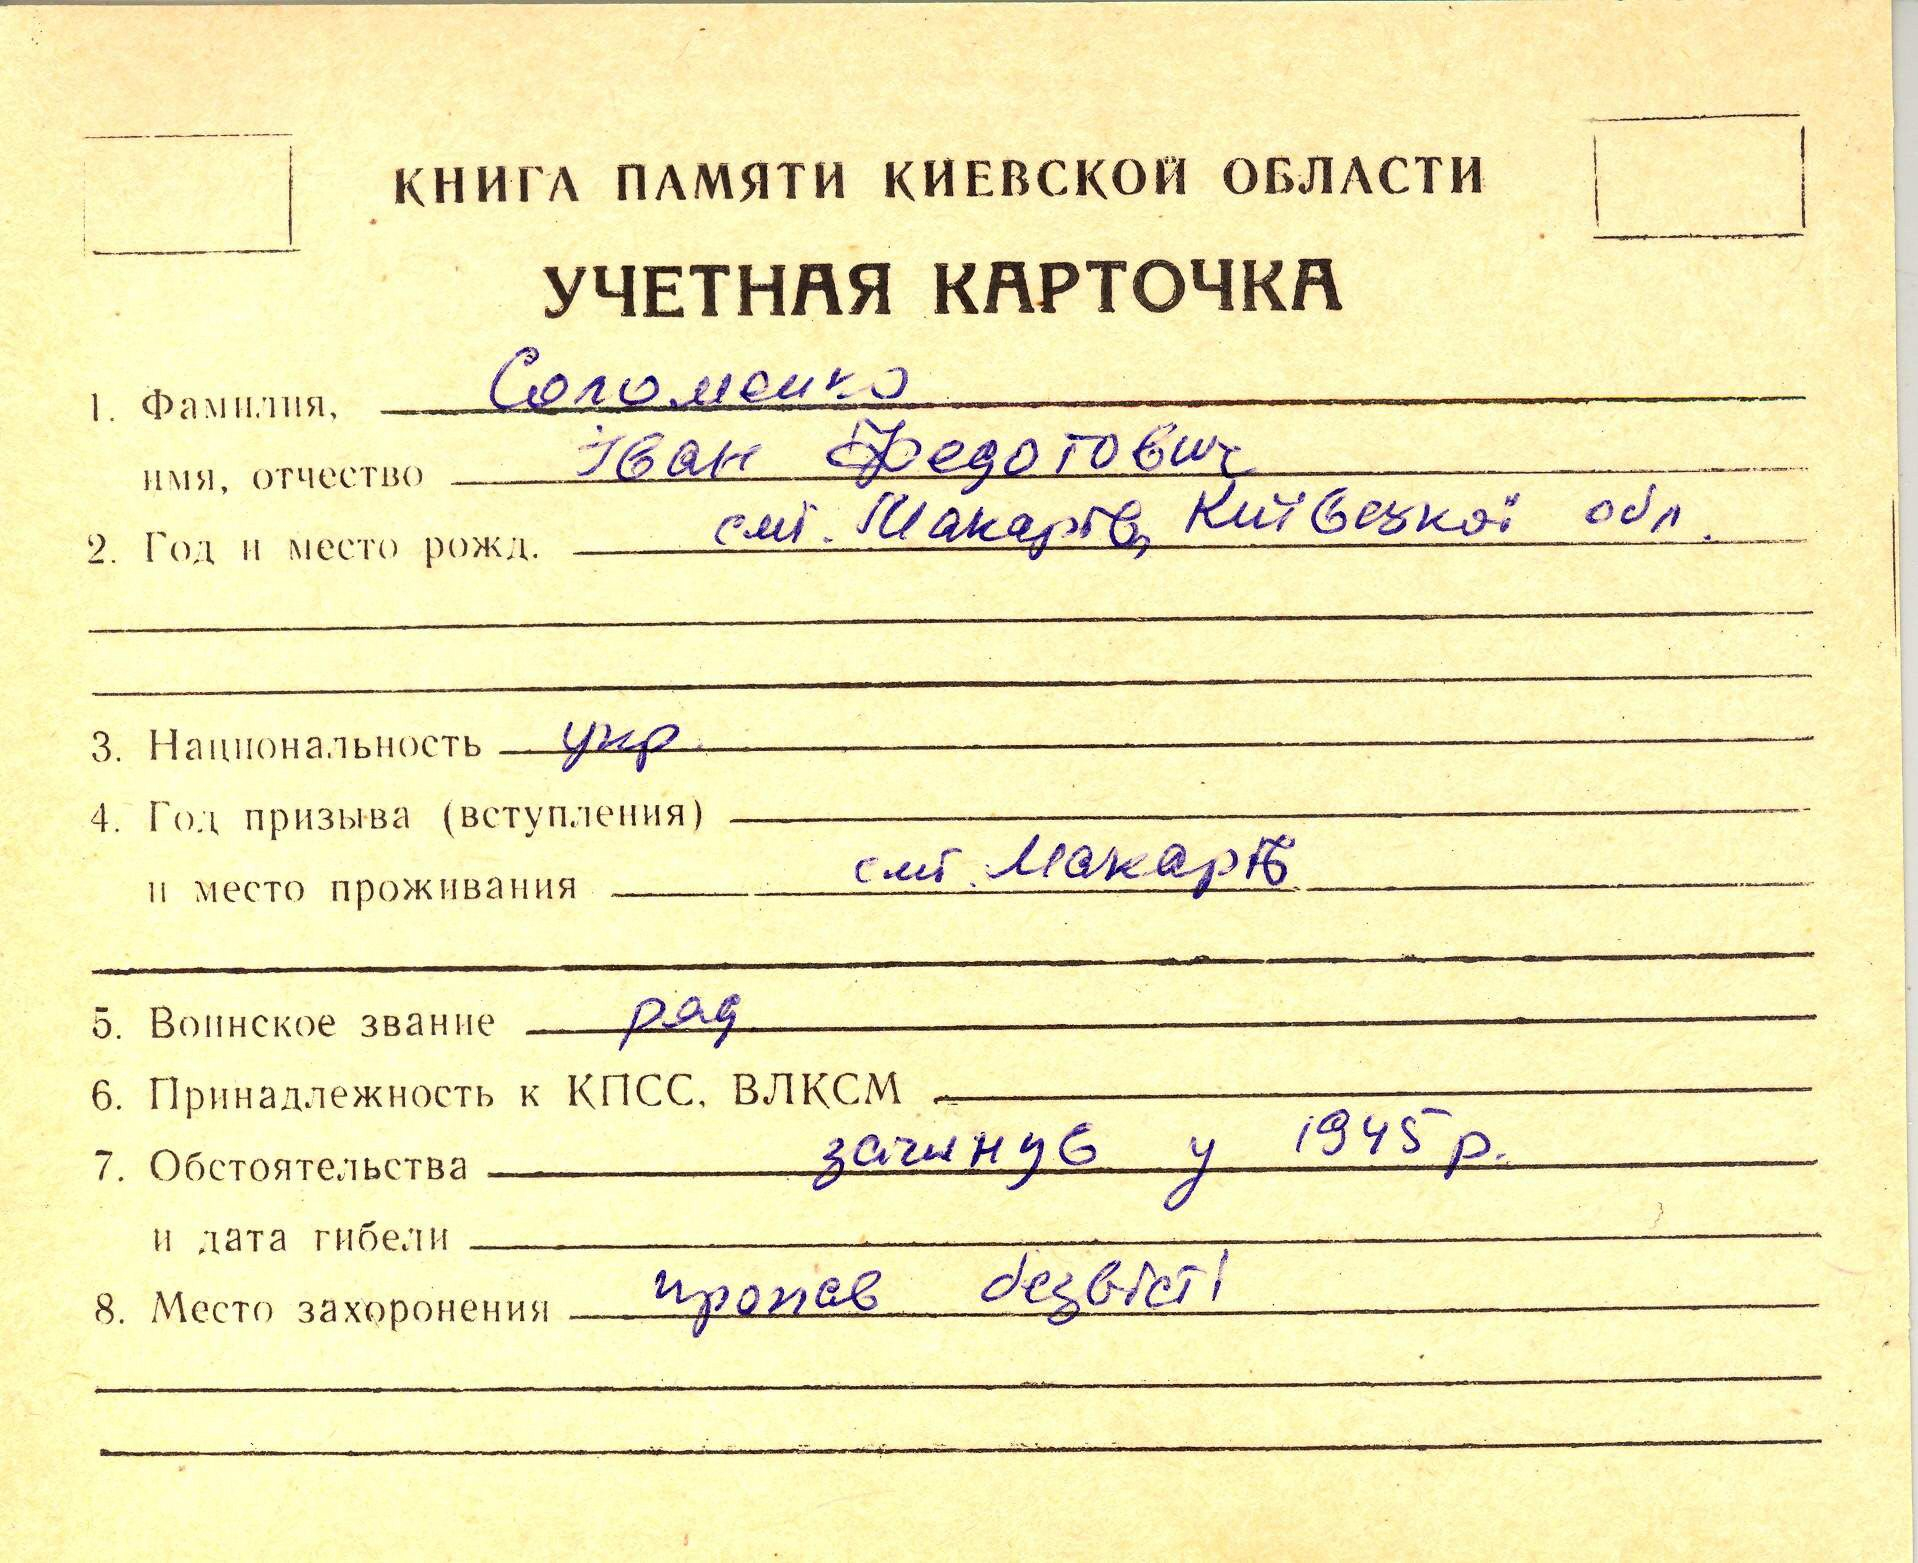 КНИГА ПАМЯТИ КИЕВСКОЙ ОБЛАСТИ
УЧЕТНАЯ КАРТОЧКА
1. Фамилия, Соломенко
имя, отчество Іван Федотович
2. Год и место рожд. смт. Макарів, Київської обл.
3. Национальность укр.
4. Год призыва (вступления)
и место проживания смт. Макарів
5. Воинское звание ряд
6. Принадлежность к КПСС, ВЛКСМ
7. Обстоятельства загинув у 1945 р.
и дата гибели
8. Место захоронения пропав безвісті